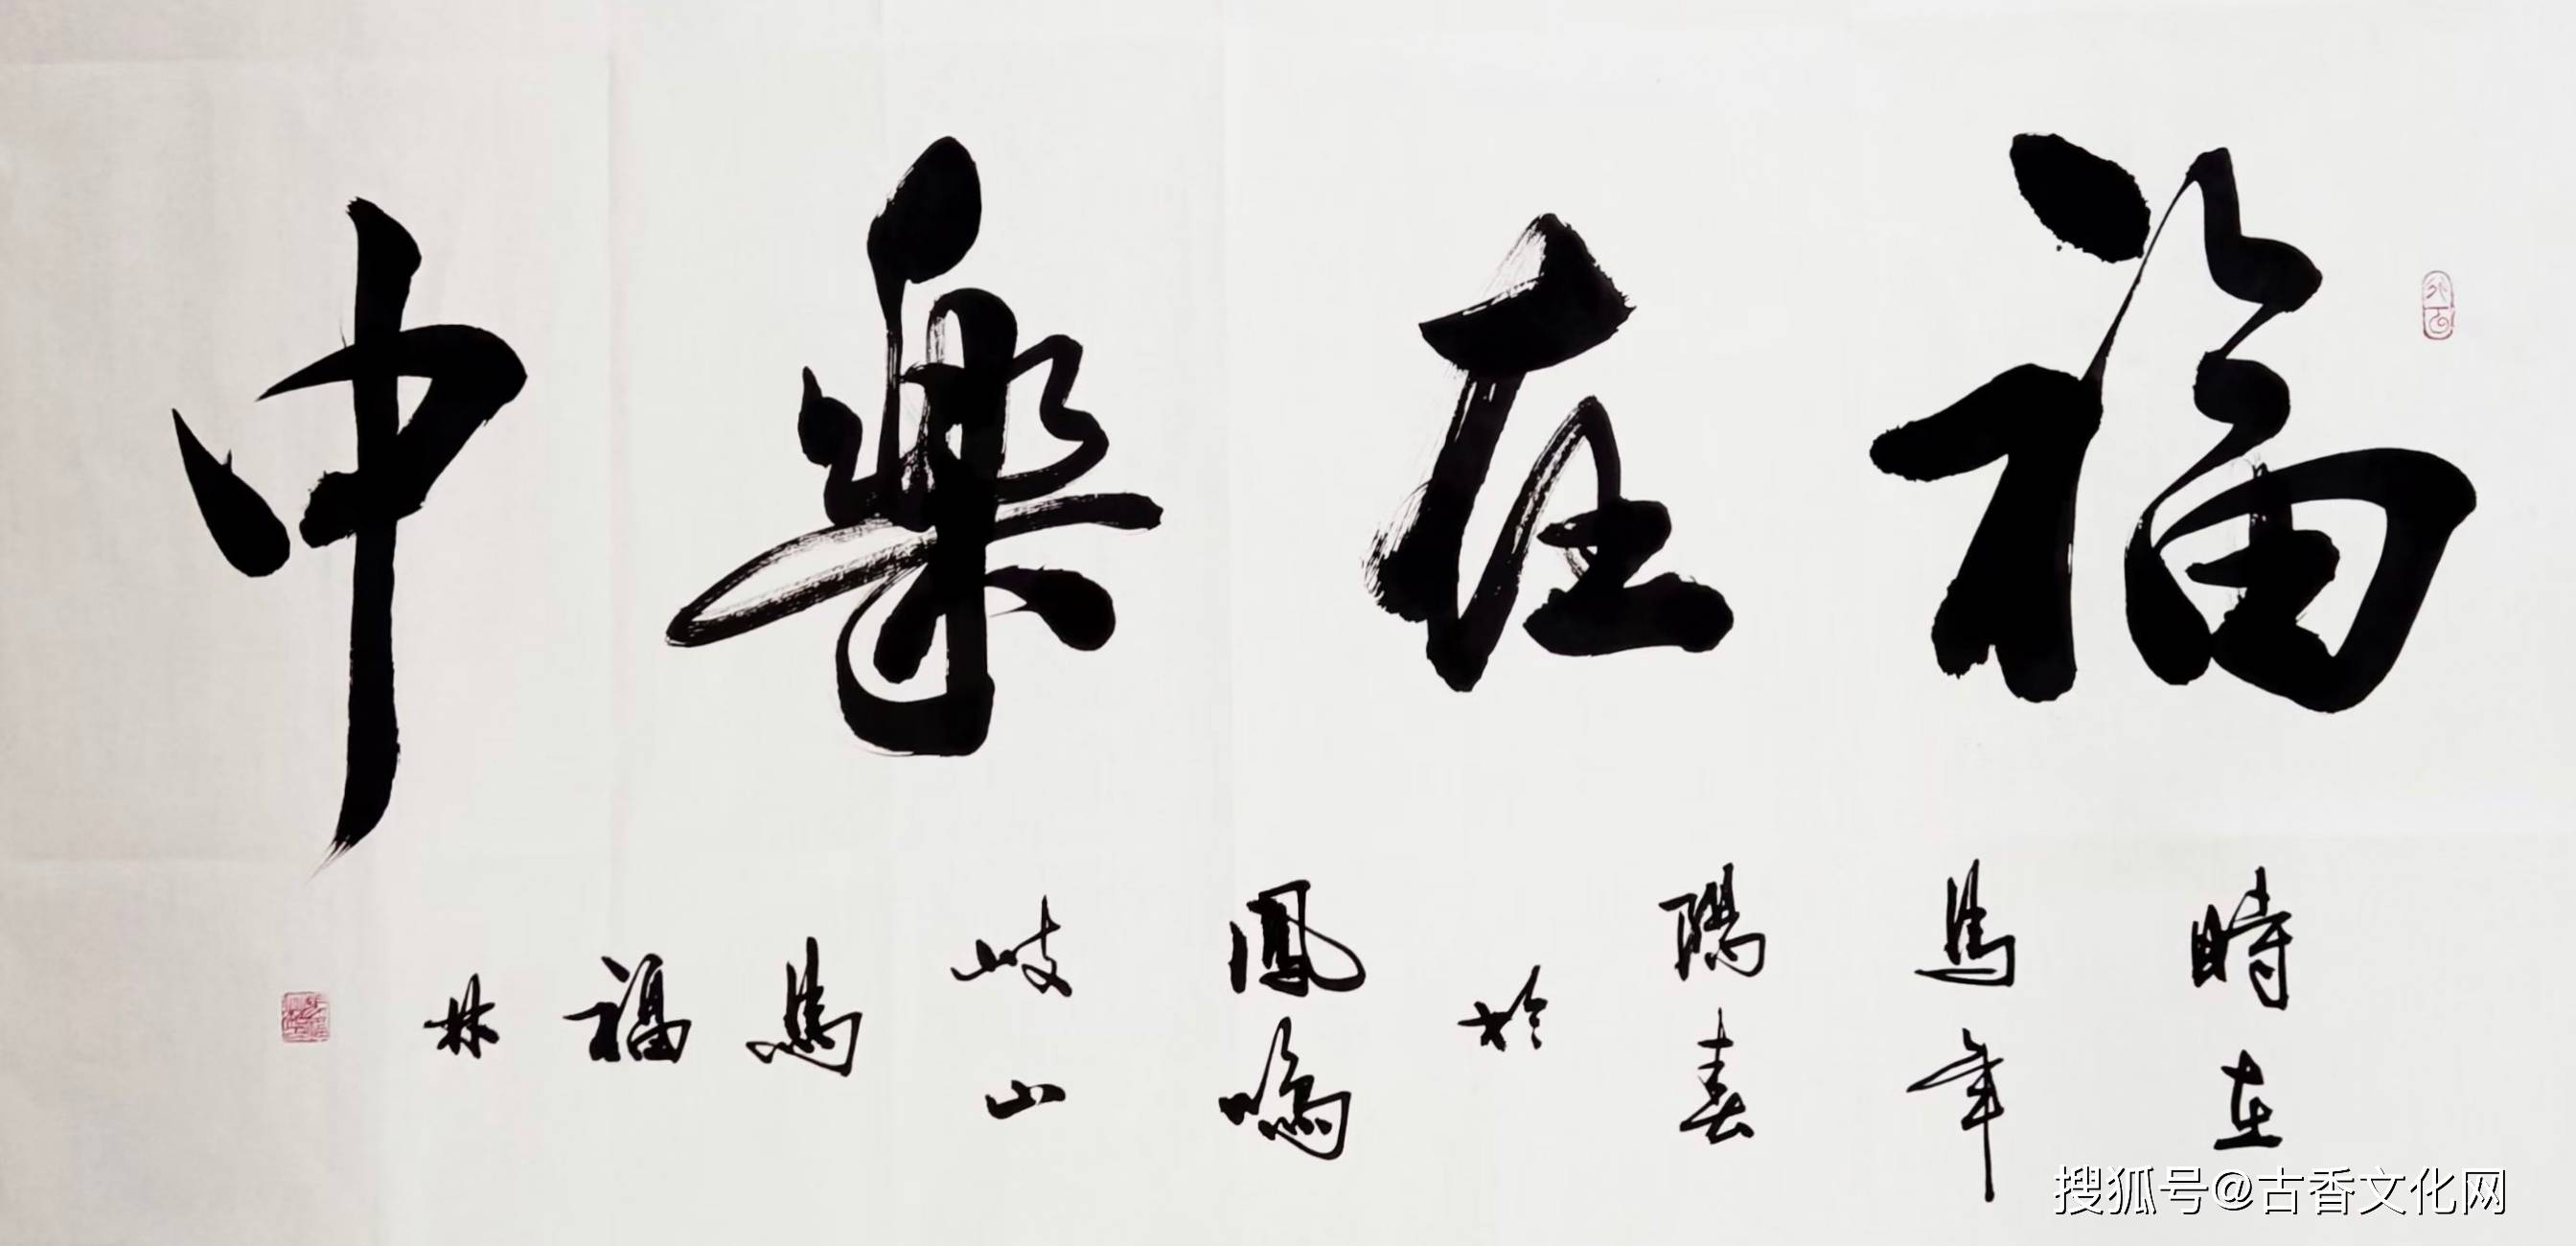 福在樂中
時在
馬年
陽春
於
鳳鳴
岐山
馬福林
搜狐号@古香文化网